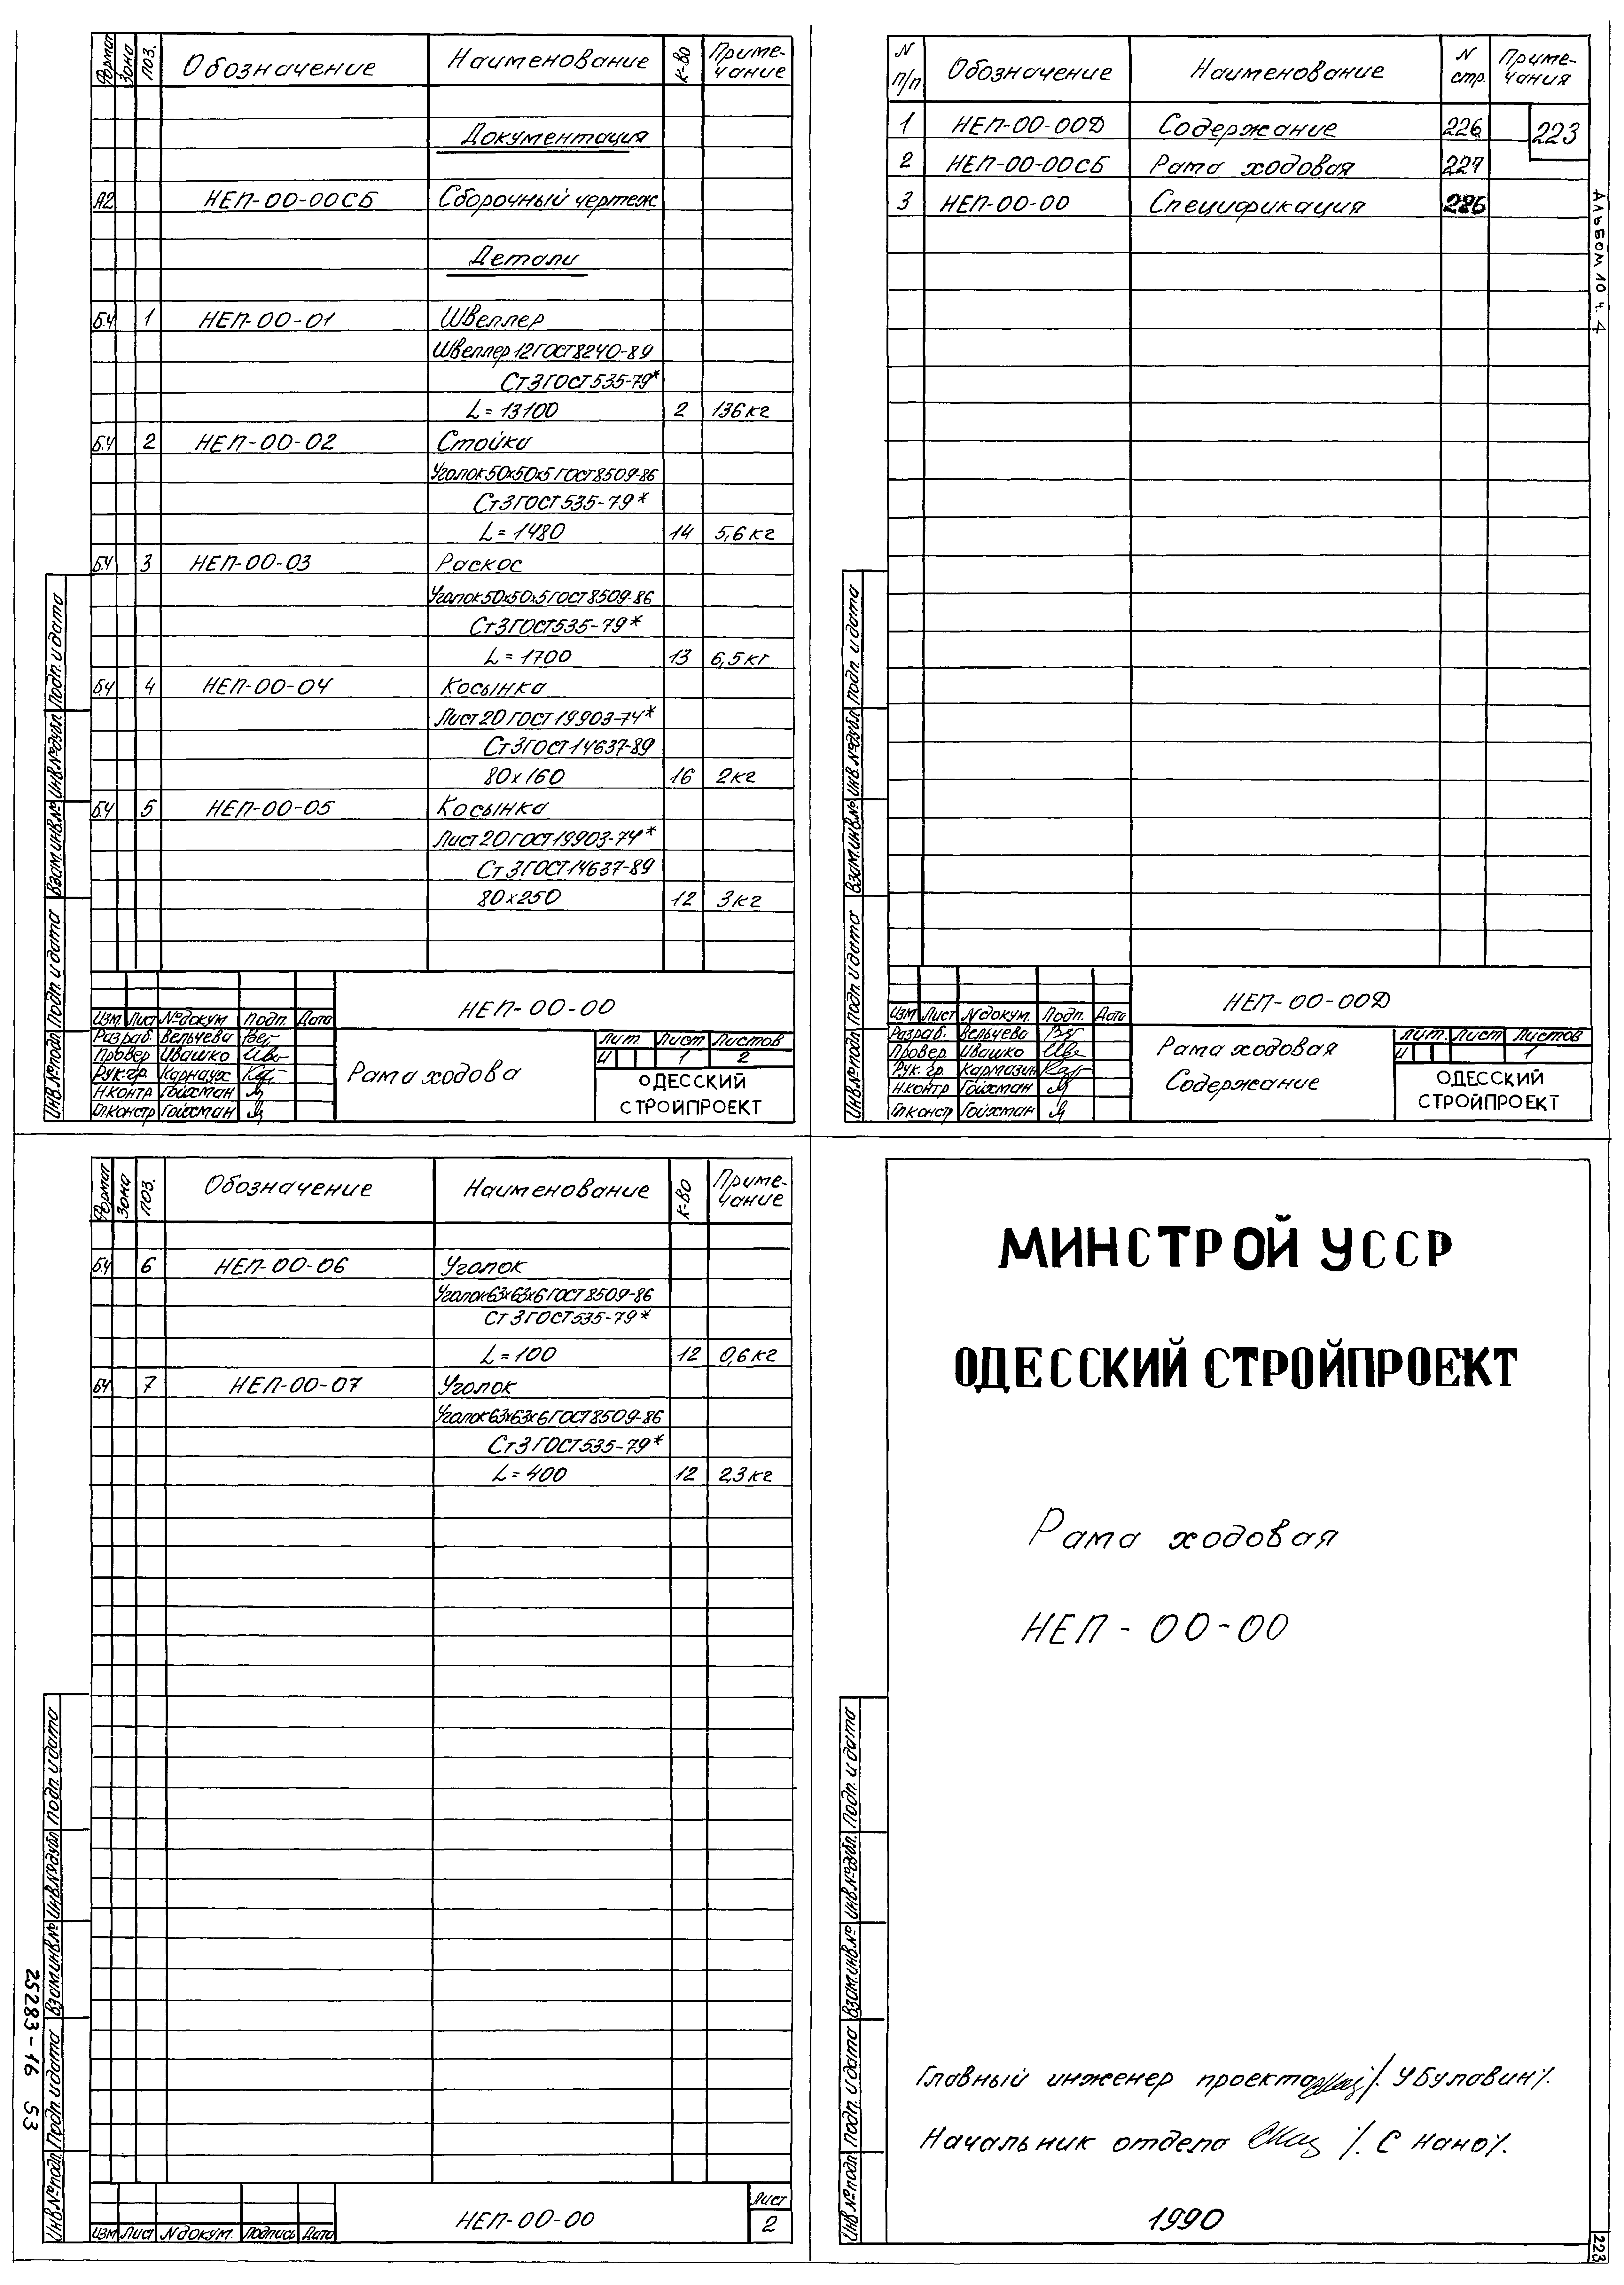 Формат Зона Поз. Обозначение Наименование К-во Приме-
чание
Документация
А2 НЕП-00-00СБ Сборочный чертеж
Детали
Б.Ч 1 НЕП-00-01 Швеллер
Швеллер 12 ГОСТ 8240-89
Ст 3 ГОСТ 535-79*
L = 13100 2 136 кг
Б.Ч 2 НЕП-00-02 Стойка
Уголок 50х50х5 ГОСТ 8509-86
Ст 3 ГОСТ 535-79*
L = 1480 14 5,6 кг
Б.Ч 3 НЕП-00-03 Раскос
Уголок 50х50х5 ГОСТ 8509-86
Ст 3 ГОСТ 535-79*
L = 1700 13 6,5 кг
Б.Ч 4 НЕП-00-04 Косынка
Лист 20 ГОСТ 19903-74*
Ст 3 ГОСТ 14637-89
80х160 16 2 кг
Б.Ч 5 НЕП-00-05 Косынка
Лист 20 ГОСТ 19903-74*
Ст 3 ГОСТ 14637-89
80х250 12 3 кг
НЕП-00-00
Изм. Лист №докум. Подп. Дата
Разраб. Вельчева
Провер Ивашко
Рук. гр. Карнаух
Н.контр Гойхман
Гл.констр Гойхман
Рама ходова
Лит. Лист Листов
И 1 2
ОДЕССКИЙ
СТРОЙПРОЕКТ
Инв.№подл. Подп. и дата Взам.инв.№ Инв.№дубл. Подп. и дата
N
п/п Обозначение Наименование N
стр. Приме-
чания
1 НЕП-00-00Д Содержание 226 223
2 НЕП-00-00СБ Рама ходовая 227
3 НЕП-00-00 Спецификация
АЛЬБОМ 10 ч. 4
НЕП-00-00Д
Изм Лист № докум. Подп. Дата
Разраб. Вельчева
Провер. Ивашко
Рук. гр. Кармазин
Н.контр Гойхман
Гл.констр Гойхман
Рама ходовая
Содержание
Лит. Лист Листов
И 1
ОДЕССКИЙ
СТРОЙПРОЕКТ
Инв.№подл. Подп. и дата Взам.инв.№ Инв.№дубл. Подп. и дата
Формат Зона Поз. Обозначение Наименование К-во Приме-
чание
Б.Ч 6 НЕП-00-06 Уголок
Уголок 63х63х6 ГОСТ 8509-86
Ст 3 ГОСТ 535-79*
L = 100 12 0,6 кг
БЧ 7 НЕП-00-07 Уголок
Уголок 63х63х6 ГОСТ 8509-86
Ст 3 ГОСТ 535-79*
L = 400 12 2,3 кг
Изм Лист № докум. Подпись Дата
НЕП-00-00
Лист
2
Инв.№подл. Подп. и дата Взам.инв.№ Инв.№дубл. Подп. и дата
25283-16 53
МИНСТРОЙ УССР
ОДЕССКИЙ СТРОЙПРОЕКТ
Рама ходовая
НЕП-00-00
Главный инженер проекта /. У Булавин/.
Начальник отдела /. С Нано/.
1990
Инв.№подл. Подп. и дата Взам.инв.№ Инв.№дубл. Подп. и дата
223